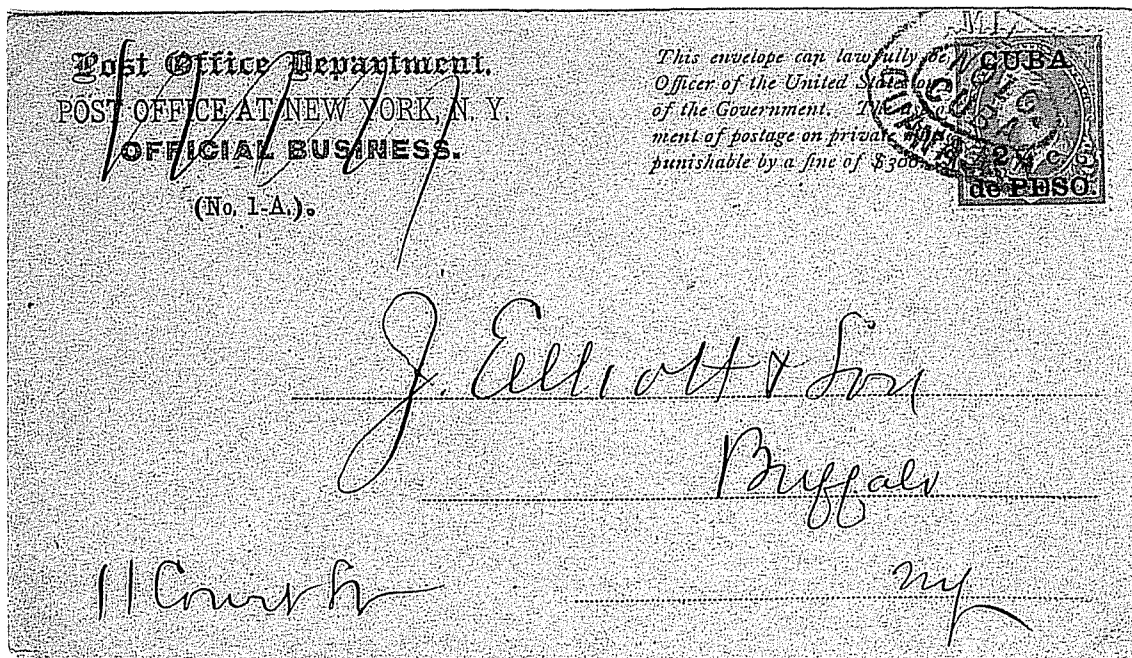 Post Office Department.
POST OFFICE AT NEW YORK, N. Y.
OFFICIAL BUSINESS.
(No. 1-A.).
This envelope can lawfully be
Officer of the United States on
of the Government. Th
ment of postage on private
punishable by a fine of $300
CUBA
2½ c.
de PESO.
J. Elliott & Son
Buffalo
NY
11 Court St